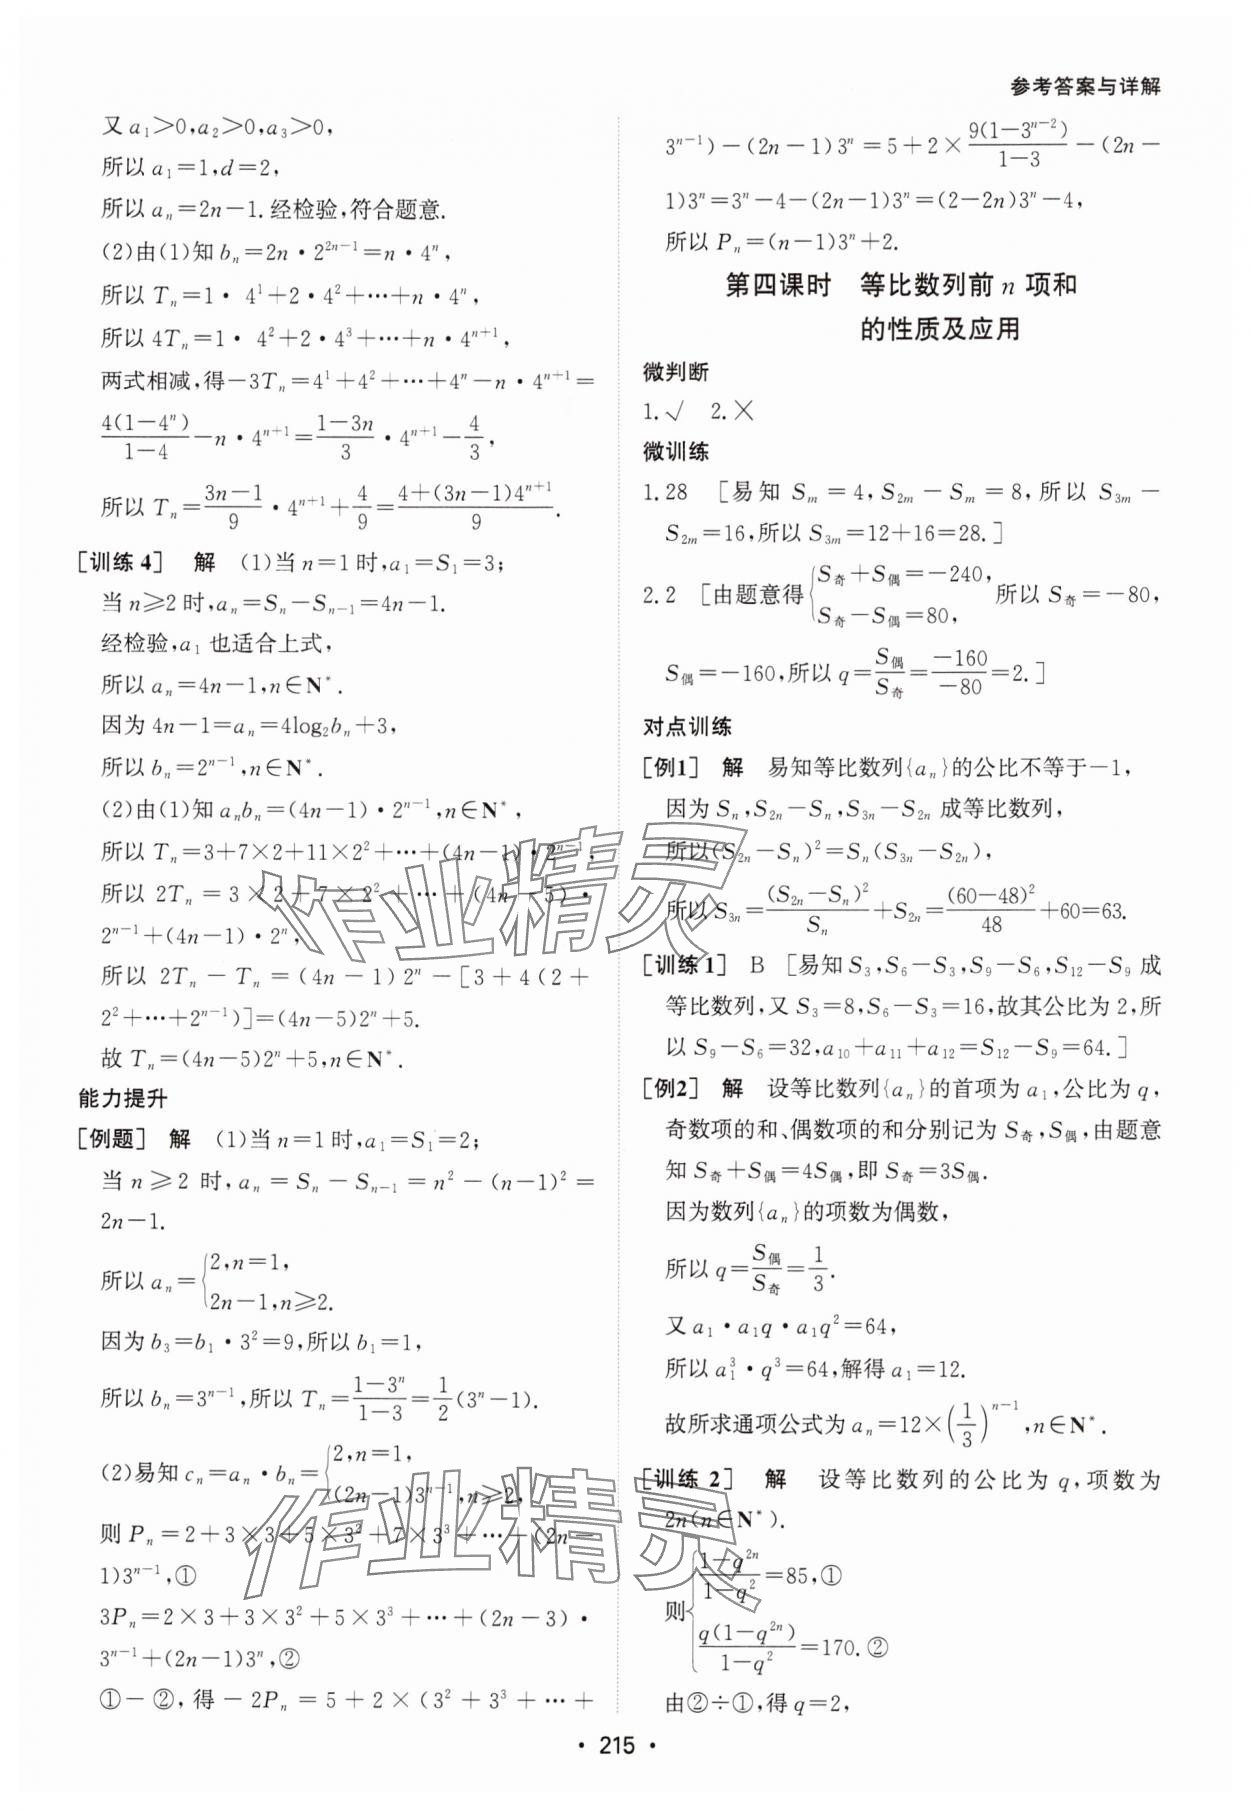 参考答案与详解
又 a₁>0,a₂>0,a₃>0,
所以 a₁=1,d=2,
所以 aₙ=2n-1.经检验,符合题意.
(2)由(1)知 bₙ=2n·2^{2n-1}=n·4ⁿ,
所以 Tₙ=1·4¹+2·4²+…+n·4ⁿ,
所以 4Tₙ=1·4²+2·4³+…+n·4^{n+1},
两式相减,得-3Tₙ=4¹+4²+…+4ⁿ-n·4^{n+1}=
\frac{4(1-4ⁿ)}{1-4}-n·4^{n+1}=\frac{1-3n}{3}·4^{n+1}-\frac{4}{3},
所以 Tₙ=\frac{3n-1}{9}·4^{n+1}+\frac{4}{9}=\frac{4+(3n-1)4^{n+1}}{9}.
[训练4] 解 (1)当 n=1 时,a₁=S₁=3;
当 n≥2 时,aₙ=Sₙ-S_{n-1}=4n-1.
经检验,a₁ 也适合上式,
所以 aₙ=4n-1,n∈N*.
因为 4n-1=aₙ=4log₂bₙ+3,
所以 bₙ=2^{n-1},n∈N*.
(2)由(1)知 aₙbₙ=(4n-1)·2^{n-1},n∈N*,
所以 Tₙ=3+7×2+11×2²+…+(4n-1)·2^{n-1},
所以 2Tₙ=3×2+7×2²+…+(4n-5)·
2^{n-1}+(4n-1)·2ⁿ,
所以 2Tₙ-Tₙ=(4n-1)2ⁿ-[3+4(2+
2²+…+2^{n-1})]=(4n-5)2ⁿ+5.
故 Tₙ=(4n-5)2ⁿ+5,n∈N*.
能力提升
[例题] 解 (1)当 n=1 时,a₁=S₁=2;
当 n≥2 时,aₙ=Sₙ-S_{n-1}=n²-(n-1)²=
2n-1.
所以 aₙ={2,n=1,
2n-1,n≥2.
因为 b₃=b₁·3²=9,所以 b₁=1,
所以 bₙ=3^{n-1},所以 Tₙ=\frac{1-3ⁿ}{1-3}=\frac{1}{2}(3ⁿ-1).
(2)易知 cₙ=aₙ·bₙ={2,n=1,
(2n-1)3^{n-1},n≥2,
则 Pₙ=2+3×3+5×3²+7×3³+…+(2n-
1)3^{n-1},①
3Pₙ=2×3+3×3²+5×3³+…+(2n-3)·
3^{n-1}+(2n-1)3ⁿ,②
①-②,得-2Pₙ=5+2×(3²+3³+…+
3^{n-1})-(2n-1)3ⁿ=5+2×\frac{9(1-3^{n-2})}{1-3}-(2n-
1)3ⁿ=3ⁿ-4-(2n-1)3ⁿ=(2-2n)3ⁿ-4,
所以 Pₙ=(n-1)3ⁿ+2.
第四课时 等比数列前 n 项和
的性质及应用
微判断
1.√ 2.×
微训练
1.28 [易知 Sₘ=4,S_{2m}-Sₘ=8,所以 S_{3m}-
S_{2m}=16,所以 S_{3m}=12+16=28.]
2.2 [由题意得{S奇+S偶=-240,
S奇-S偶=80, 所以 S奇=-80,
S偶=-160,所以 q=\frac{S偶}{S奇}=\frac{-160}{-80}=2.]
对点训练
[例1] 解 易知等比数列{aₙ}的公比不等于-1,
因为 Sₙ,S_{2n}-Sₙ,S_{3n}-S_{2n} 成等比数列,
所以(S_{2n}-Sₙ)²=Sₙ(S_{3n}-S_{2n}),
所以 S_{3n}=\frac{(S_{2n}-Sₙ)²}{Sₙ}+S_{2n}=\frac{(60-48)²}{48}+60=63.
[训练1] B [易知 S₃,S₆-S₃,S₉-S₆,S₁₂-S₉ 成
等比数列,又 S₃=8,S₆-S₃=16,故其公比为 2,所
以 S₉-S₆=32,a₁₀+a₁₁+a₁₂=S₁₂-S₉=64.]
[例2] 解 设等比数列{aₙ}的首项为 a₁,公比为 q,
奇数项的和、偶数项的和分别记为 S奇,S偶,由题意
知 S奇+S偶=4S偶,即 S奇=3S偶.
因为数列{aₙ}的项数为偶数,
所以 q=\frac{S偶}{S奇}=\frac{1}{3}.
又 a₁·a₁q·a₁q²=64,
所以 a₁³·q³=64,解得 a₁=12.
故所求通项公式为 aₙ=12×(\frac{1}{3})^{n-1},n∈N*.
[训练2] 解 设等比数列的公比为 q,项数为
2n(n∈N*).
则{\frac{1-q^{2n}}{1-q²}=85,①
\frac{q(1-q^{2n})}{1-q²}=170.②
由②÷①,得 q=2,
·215·
作业精灵
作业精灵